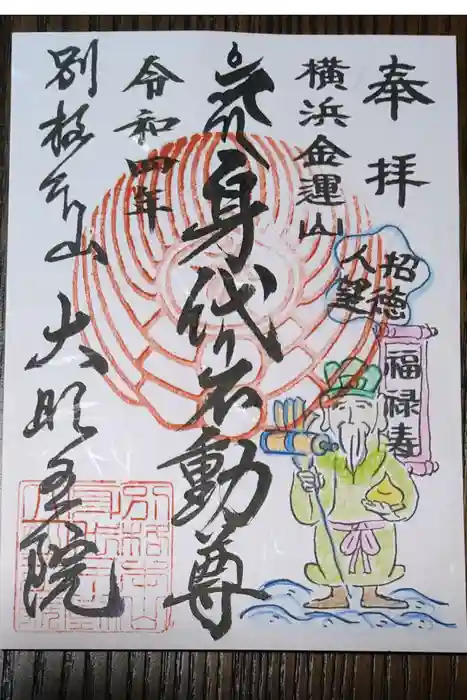 奉拝
横浜金運山
招徳
人望
福禄寿
身代り不動尊
令和四年
別格本山 大明王院